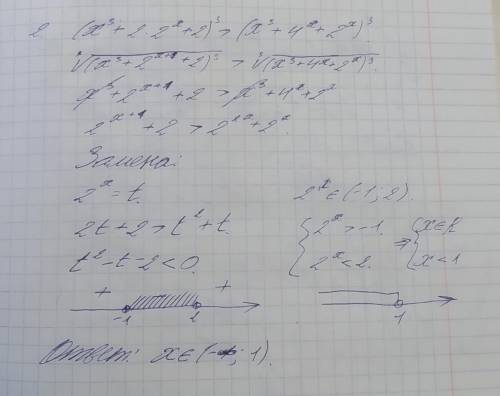 2 (x³ + 2·2ˣ + 2)³ > (x³ + 4ˣ + 2ˣ)³
³√(x³ + 2ˣ⁺¹ + 2)³ > ³√(x³ + 4ˣ + 2ˣ)³
x³ + 2ˣ⁺¹ + 2 > x³ + 4ˣ + 2ˣ
2ˣ⁺¹ + 2 > 2²ˣ + 2ˣ
Замена:
2ˣ = t.
2t + 2 > t² + t.
t² - t - 2 < 0.
+ +
-1 2
2ˣ ∈ (-1; 2).
{ 2ˣ > -1. ⇒ { x ∈ R
2ˣ < 2. x < 1
1
Ответ: x ∈ (-∞; 1).